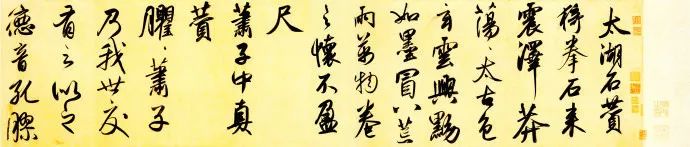 太湖石贊
猗拳石來
震澤莽
蕩々太古色
玄雲興黝
如墨冒八荒
雨萬物卷
之懷不盈
尺
蕭子中真
贊
臞々蕭子
乃我世交
有之似之
德音孔膠